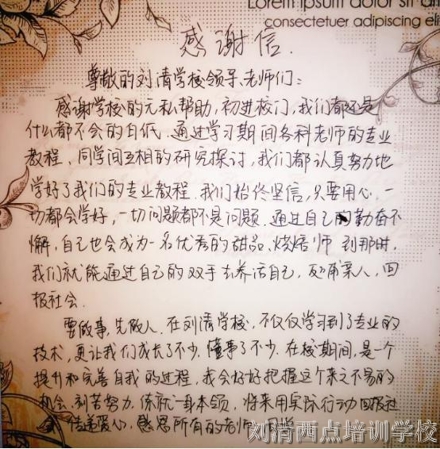 Lorem ipsum dolor sit
consectetuer adipiscing eli
感谢信.
尊敬的刘清学校领导、老师们:
感谢学校的无私帮助,初进校门,我们都还是
什么都不会的白纸。通过学习期间各科老师的专业
教程,同学间互相的研究探讨,我们都认真努力地
学好了我们的专业教程。我们始终坚信,只要用心,一
切都会学好,一切问题都不是问题。通过自己的勤奋不
懈,自己也会成为一名优秀的甜品、烘焙师。到那时,
我们就能通过自己的双手去养活自己,反哺家人,回
报社会。
要做事,先做人。在刘清学校,不仅仅学习到了专业的
技术,更让我们成长了不少,懂事了不少。在校期间,是一个
提升和完善自我的过程,我会好好把握这个来之不易的
机会,刻苦努力,练就一身本领,将来用实际行动回报社
会,传递爱心,感恩所有的老师、同学
刘清西点培训学校